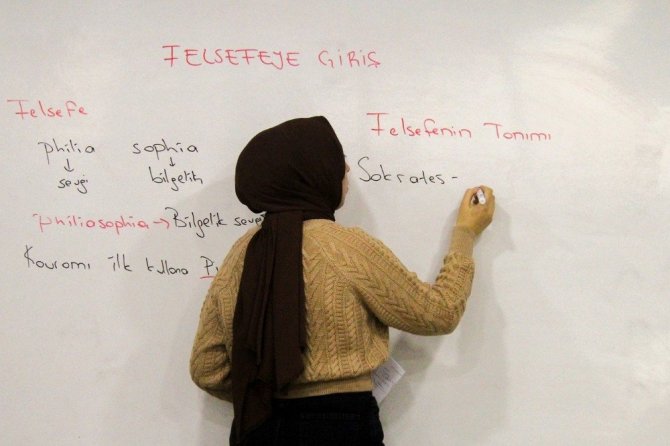 FELSEFEYE GİRİŞ
Felsefe
philia sophia
↓ ↓
sevgi bilgelik
philiasophia → Bilgelik
Kavramı ilk kullana
Felsefenin Tanımı
Sokrates -